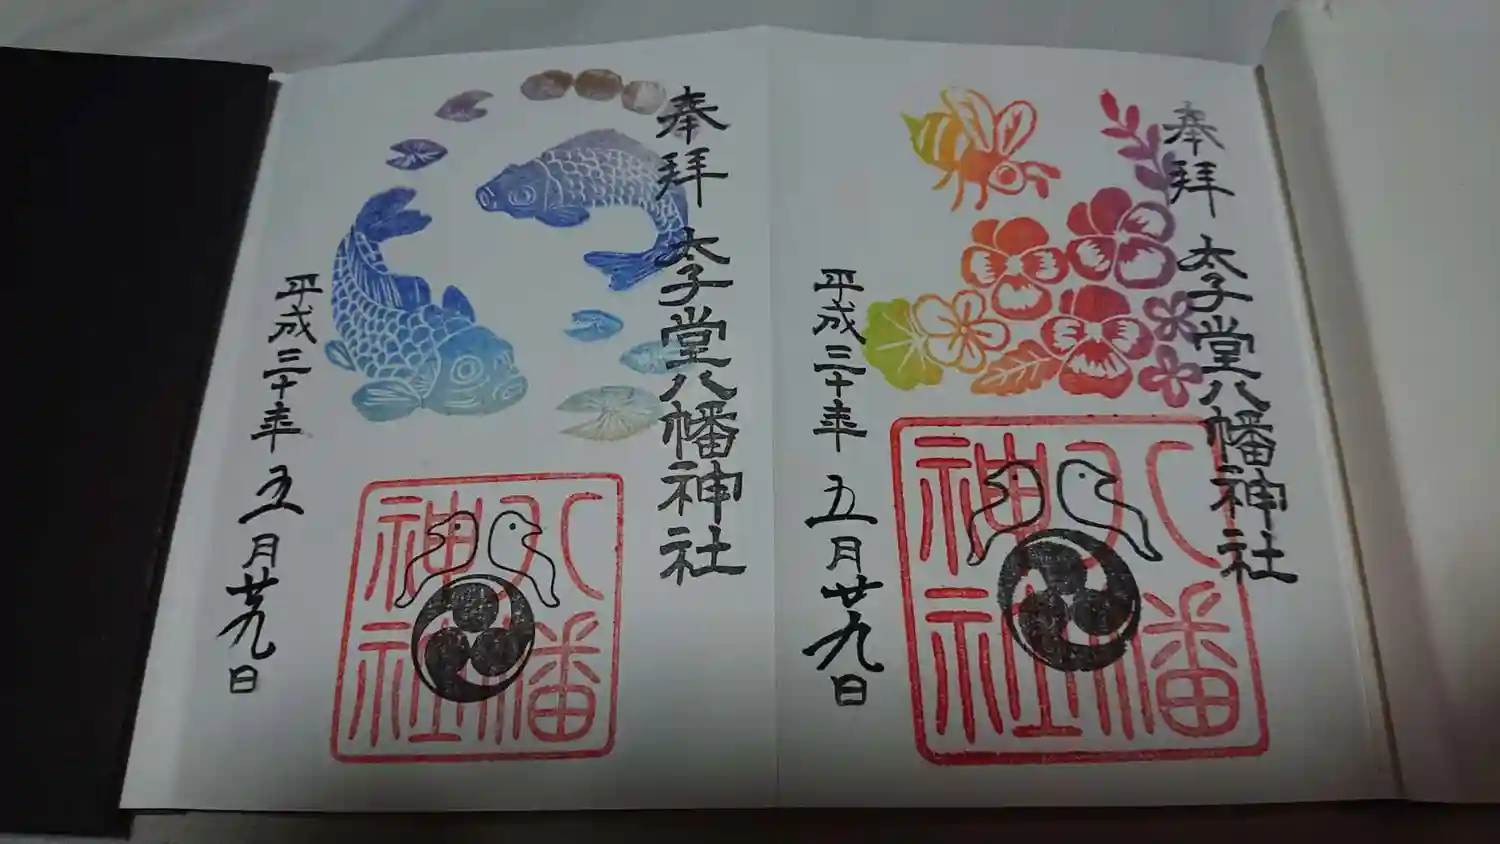 奉拝 太子堂八幡神社
八幡
神社
平成三十年 五月廿九日
奉拝 太子堂八幡神社
八幡
神社
平成三十年 五月廿九日